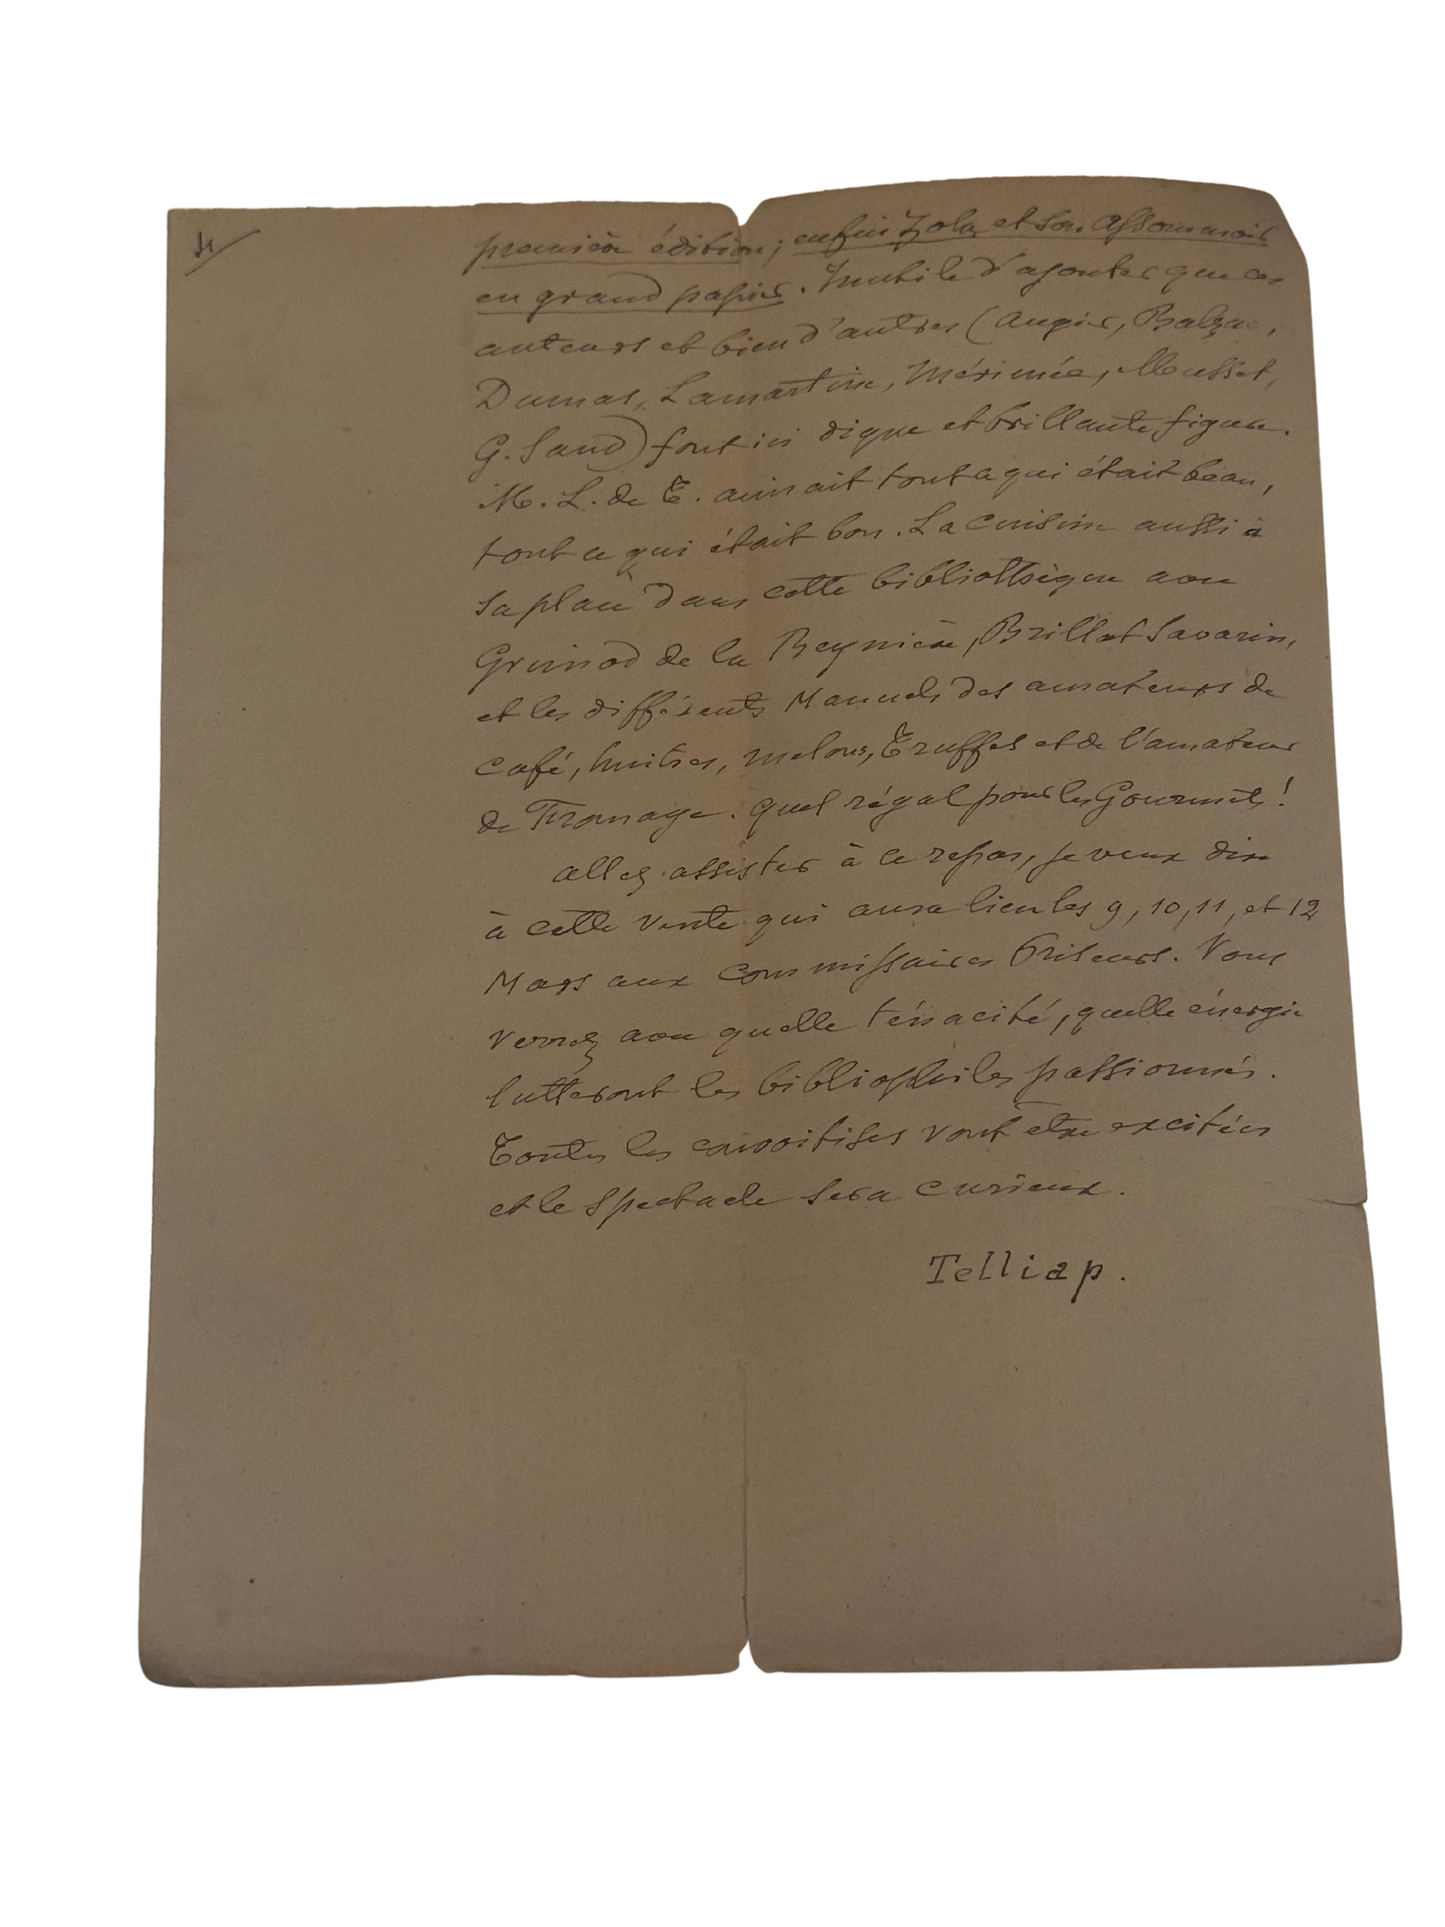 4
première édition; enfin Zola et son Assommoir
en grand papier. Inutile d'ajouter que ces
auteurs et bien d'autres (Augier, Balzac,
Dumas, Lamartine, Mérimée, Musset,
G. Sand) font ici digne et brillante figure.
M. L. de E. aimait tout ce qui était beau,
tout ce qui était bon. La cuisine aussi a
sa place dans cette bibliothèque avec
Grimod de la Reynière, Brillat Savarin,
et les différents Manuels des amateurs de
café, huitres, melons, Truffes et de l'amateur
de Fromage. Quel régal pour les Gourmets!
allez assister à ce repas, je veux dire
à cette vente qui aura lieu les 9, 10, 11, et 12
Mars aux Commissaires Priseurs. Vous
verrez avec quelle ténacité, quelle énergie
lutteront les bibliophiles passionnés.
Toutes les convoitises vont être excitées
et le spectacle sera curieux.
Telliap.